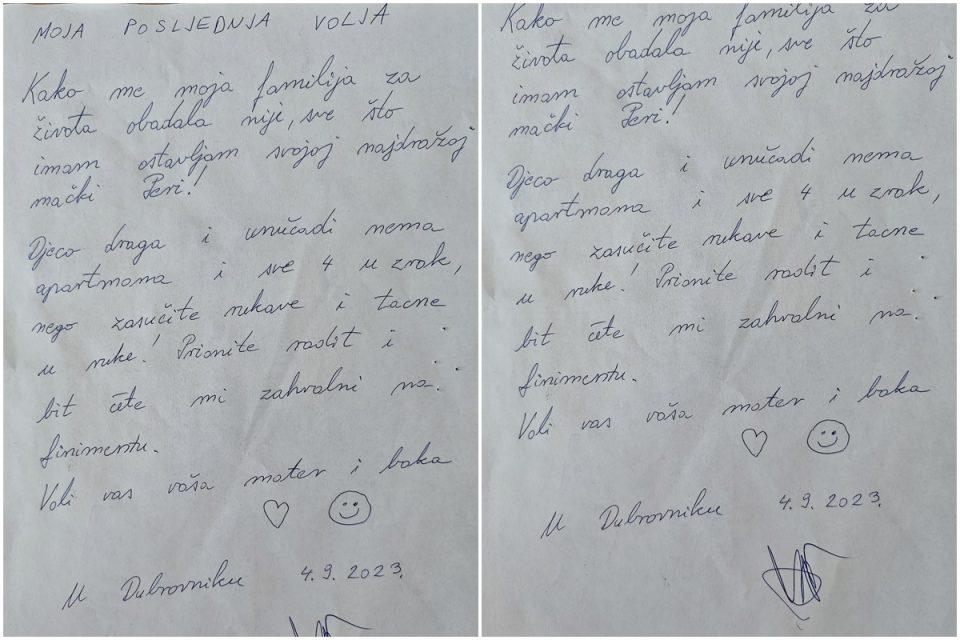 MOJA POSLJEDNJA VOLJA
Kako me moja familija za
života obadala nije, sve što
imam ostavljam svojoj najdražoj
mački Peri!
Djeco draga i unučadi nema
apartmana i sve 4 u zrak,
nego zasučite rukave i tacne
u ruke! Prionite radit i
bit ćete mi zahvalni na
finimentu.
Voli vas vaša mater i baka
U Dubrovniku 4.9.2023.
Kako me moja familija za
života obadala nije, sve što
imam ostavljam svojoj najdražoj
mački Peri!
Djeco draga i unučadi nema
apartmana i sve 4 u zrak,
nego zasučite rukave i tacne
u ruke! Prionite radit i
bit ćete mi zahvalni na
finimentu.
Voli vas vaša mater i baka
U Dubrovniku 4.9.2023.